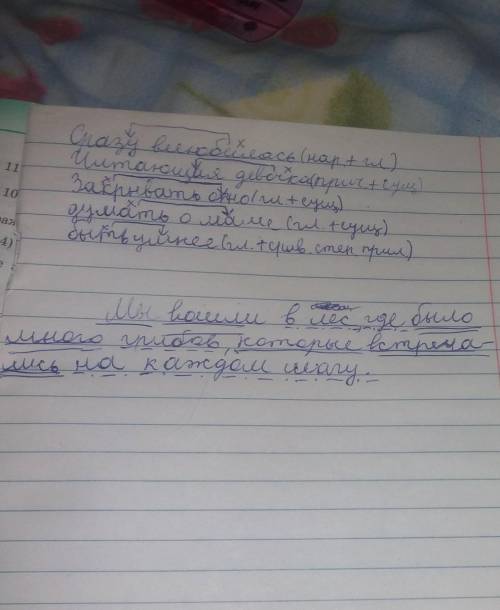 Сразу влюбилась (нар + гл)
Читающия девочка (прич + сущ)
Закрывать окно (гл + сущ)
думать о маме (гл + сущ)
быть умнее (гл + срав. степ прил)
Мы вошли в лес где было
много грибов, которые встреча-
лись на каждом шагу.
11
10
4)